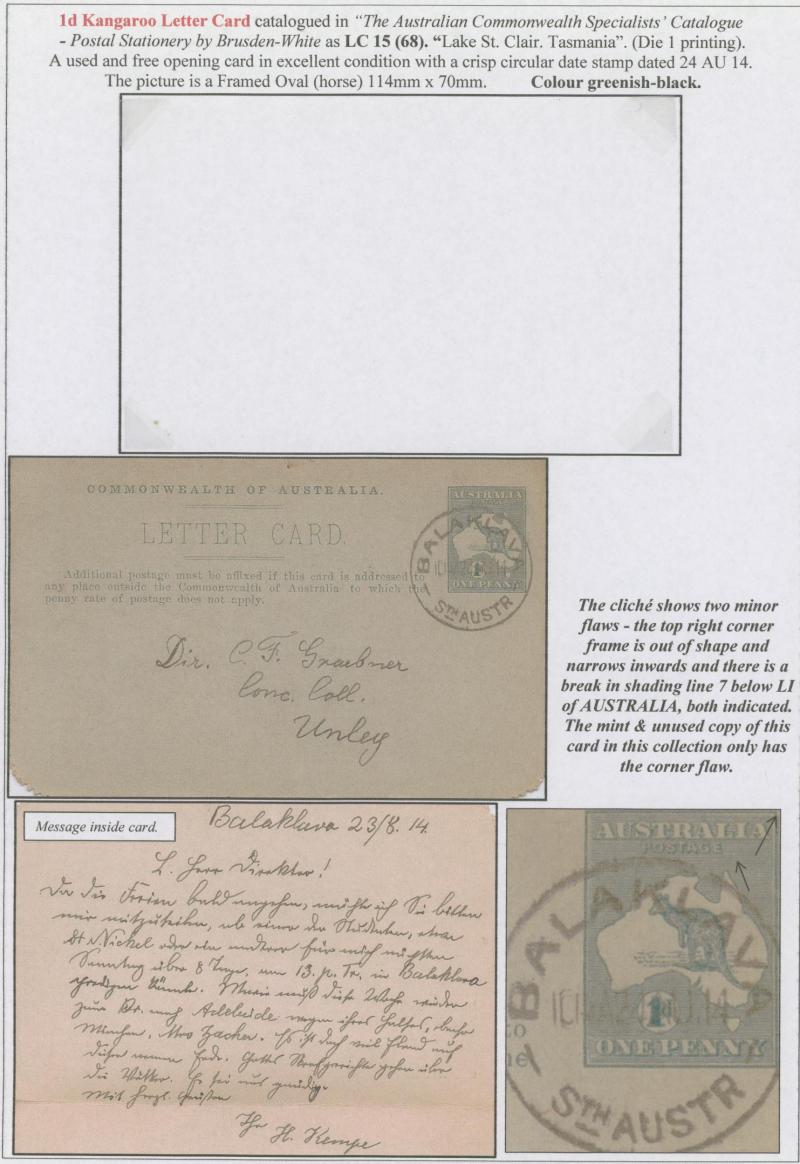 1d Kangaroo Letter Card catalogued in "The Australian Commonwealth Specialists' Catalogue
- Postal Stationery by Brusden-White as LC 15 (68). "Lake St. Clair. Tasmania". (Die 1 printing).
A used and free opening card in excellent condition with a crisp circular date stamp dated 24 AU 14.
The picture is a Framed Oval (horse) 114mm x 70mm. Colour greenish-black.
COMMONWEALTH OF AUSTRALIA.
LETTER CARD.
Additional postage must be affixed if this card is addressed to
any place outside the Commonwealth of Australia to which the
penny rate of postage does not apply.
AUSTRALIA
1d
ONE PENNY
BALAKLAVA
STH AUSTR
Dir. C. F. Graebner
Conc. Coll.
Unley
The cliché shows two minor
flaws - the top right corner
frame is out of shape and
narrows inwards and there is a
break in shading line 7 below LI
of AUSTRALIA, both indicated.
The mint & unused copy of this
card in this collection only has
the corner flaw.
Message inside card.
Balaklava 23/8. 14.
L. Herr Direktor!
Da die Ferien bald angehen, möchte ich Sie bitten
mir mitzuteilen, ob einer der Studenten, etwa
St Nickel oder ein anderer für mich nächsten
Sonntag über 8 Tage, am 13. p. Tr. in Balaklava
predigen könnte. Marie muß diese Woche wieder
zum Dr. nach Adelaide wegen ihres Halses,
Mrs Zacher. Es ist doch viel Elend auf
dieser armen Erde. Gottes Strafgerichte gehen über
die Völker. Er sei uns gnädig.
Mit herzl. Grüßen
Ihr H. Kempe
AUSTRALIA
POSTAGE
1d
ONE PENNY
BALAKLAVA
STH AUSTR